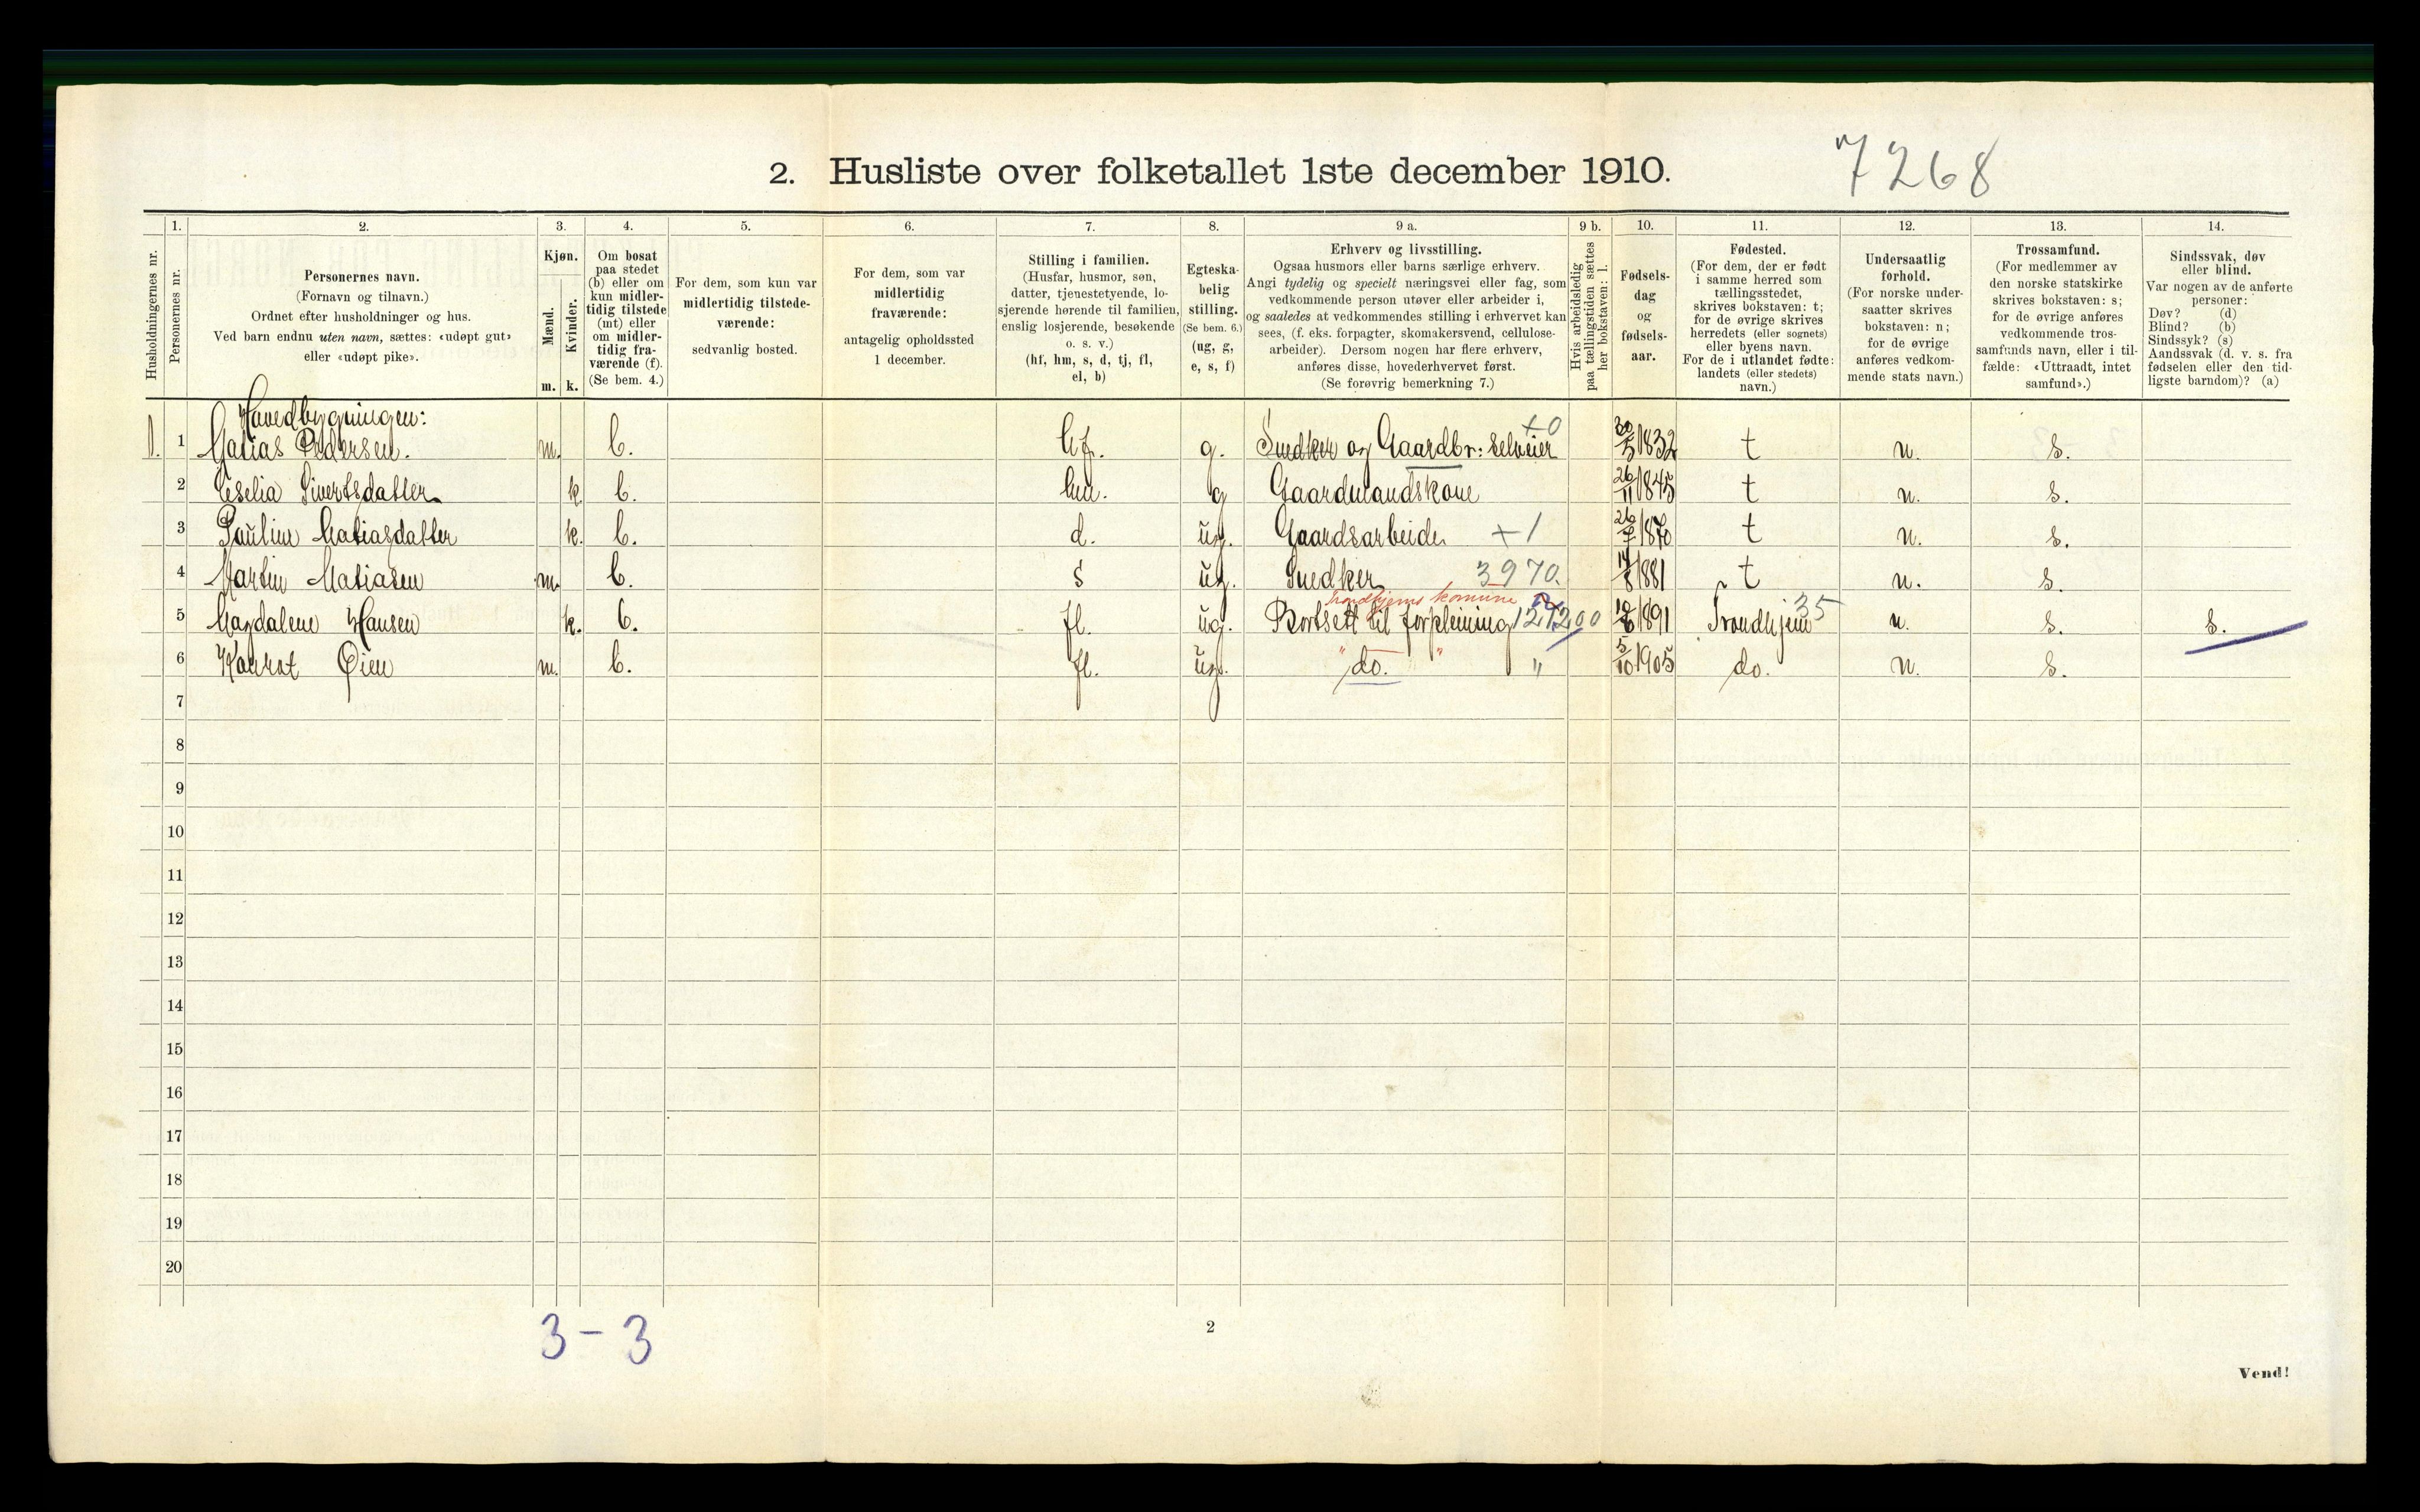 7268
2. Husliste over folketallet 1ste december 1910.
1. 2. 3. 4. 5. 6. 7. 8. 9 a. 9 b. 10. 11. 12. 13. 14.
Husholdningernes nr.
Personernes nr.
Personernes navn.
(Fornavn og tilnavn.)
Ordnet efter husholdninger og hus.
Ved barn endnu uten navn, sættes: «udøpt gut»
eller «udøpt pike».
Kjøn.
Mænd.
Kvinder.
m. k.
Om bosat
paa stedet
(b) eller om
kun midler-
tidig tilstede
(mt) eller
om midler-
tidig fra-
værende (f).
(Se bem. 4.)
For dem, som kun var
midlertidig tilstede-
værende:
sedvanlig bosted.
For dem, som var
midlertidig
fraværende:
antagelig opholdssted
1 december.
Stilling i familien.
(Husfar, husmor, søn,
datter, tjenestetyende, lo-
sjerende hørende til familien,
enslig losjerende, besøkende
o. s. v.)
(hf, hm, s, d, tj, fl,
el, b)
Egteska-
belig
stilling.
(Se bem. 6.)
(ug, g,
e, s, f)
Erhverv og livsstilling.
Ogsaa husmors eller barns særlige erhverv.
Angi tydelig og specielt næringsvei eller fag, som
vedkommende person utøver eller arbeider i,
og saaledes at vedkommendes stilling i erhvervet kan
sees, (f. eks. forpagter, skomakersvend, cellulose-
arbeider). Dersom nogen har flere erhverv,
anføres disse, hovederhvervet først.
(Se forøvrig bemerkning 7.)
Hvis arbeidsledig
paa tællingstiden sættes
her bokstaven: l.
Fødsels-
dag
og
fødsels-
aar.
Fødested.
(For dem, der er født
i samme herred som
tællingsstedet,
skrives bokstaven: t;
for de øvrige skrives
herredets (eller sognets)
eller byens navn.
For de i utlandet fødte:
landets (eller stedets)
navn.)
Undersaatlig
forhold.
(For norske under-
saatter skrives
bokstaven: n;
for de øvrige
anføres vedkom-
mende stats navn.)
Trossamfund.
(For medlemmer av
den norske statskirke
skrives bokstaven: s;
for de øvrige anføres
vedkommende tros-
samfunds navn, eller i til-
fælde: «Uttraadt, intet
samfund».)
Sindssvak, døv
eller blind.
Var nogen av de anførte
personer:
Døv? (d)
Blind? (b)
Sindssyk? (s)
Aandssvak (d. v. s. fra
fødselen eller den tid-
ligste barndom)? (a)
Hovedbygningen:
1. 1 Matias Pedersen. m. b. hf. g. Snedker og Gaardbr: selveier +0 30/5 1832 t n. s.
2 Eselia Sivertsdatter k. b. hm. g Gaardmandskone 26/11 1845 t n. s.
3 Pauline Matiasdatter k. b. d. ug. Gaardsarbeide +1 1870 t n. s.
4 Martin Matiasen m. b. s ug. Snedker 3970. 14/8 1881 t n. s.
Trondhjems komune
5 Magdalene Hansen k. b. fl. ug. Bortsett til forpleining 10/6 1891 Trondhjem 35 n. s. s.
6 Konrat Øien m. b. fl. ug. " do. " " 5/10 1905 do. n. s.
7
8
9
10
11
12
13
14
15
16
17
18
19
20
3 - 3
2
Vend!